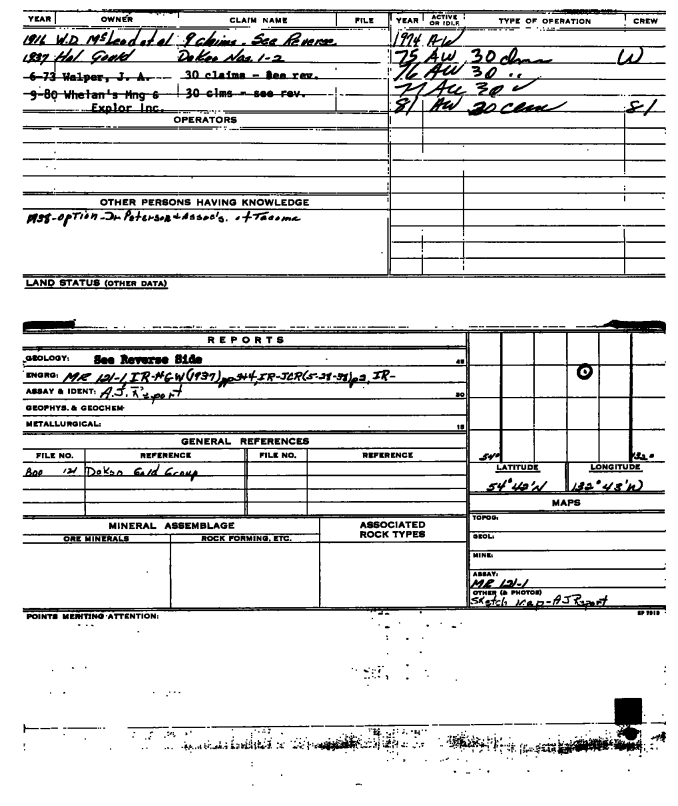 YEAR OWNER CLAIM NAME FILE YEAR ACTIVE OR IDLE TYPE OF OPERATION CREW
1916 W.D. McLeod et al 9 claims. See Reverse. 1974 AW
1937 Hal Gould Dakoo Nos. 1-2 75 AW 30 clms W
6-73 Walper, J. A. 30 claims - See rev. 76 AW 30 "
9-80 Whelan's Mng & 30 clms - see rev. 77 AW 30
Explor Inc. 81 AW 30 clms 81
OPERATORS
OTHER PERSONS HAVING KNOWLEDGE
1938-option-Dr. Peterson & Assoc's. of Tacoma
LAND STATUS (OTHER DATA)
REPORTS
GEOLOGY: See Reverse Side 45
ENGRG: MR 121-1, IR-HGW (1937) pp 3+4, IR-JCR (5-28-38) p2, IR-
ASSAY & IDENT: A.J. Report 30
GEOPHYS. & GEOCHEM
METALLURGICAL: 15
GENERAL REFERENCES
FILE NO. REFERENCE FILE NO. REFERENCE
121 Dakoo Gold Group
MINERAL ASSEMBLAGE ASSOCIATED ROCK TYPES
ORE MINERALS ROCK FORMING, ETC.
54° 132°
LATITUDE LONGITUDE
54°42'N 132°43'W
MAPS
TOPOG:
GEOL:
MINE:
ASSAY:
MR 121-1
OTHER (& PHOTOS)
Sketch Map-AJ Report
POINTS MERITING ATTENTION: